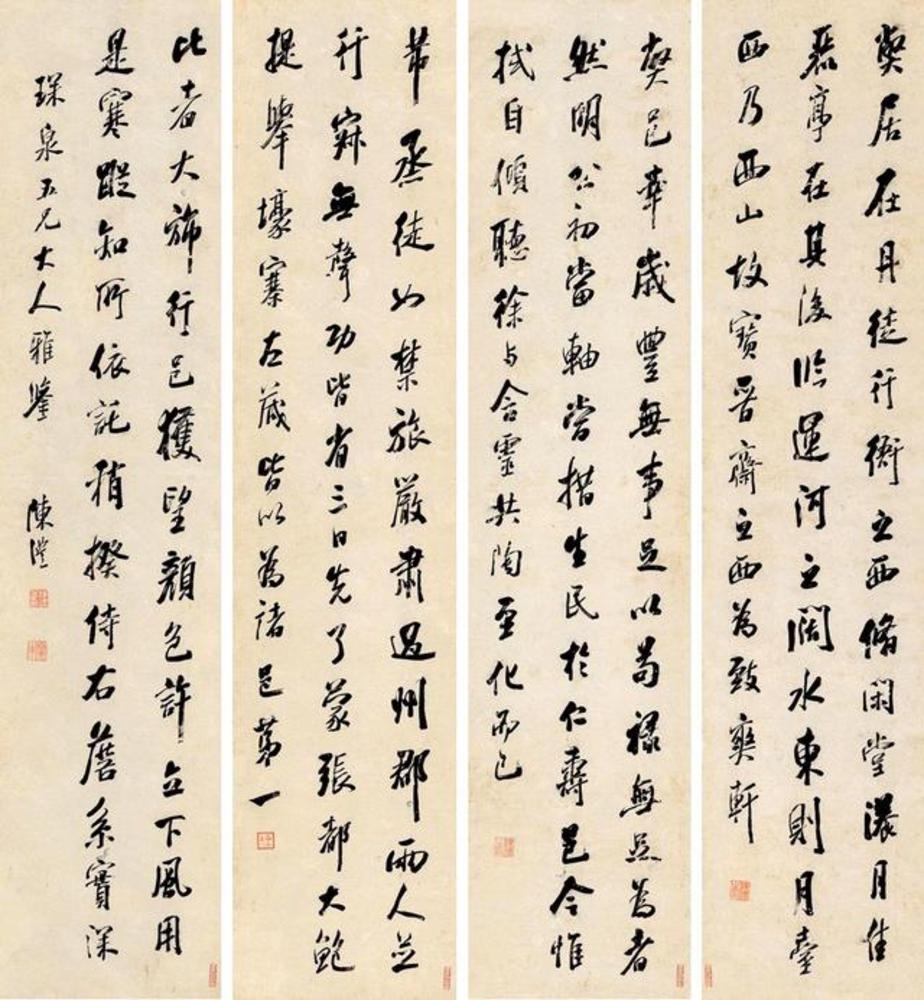 獘居在丹徒行衙之西脩閑堂漾月佳
麗亭在其後臨運河之闊水東則月臺
西乃西山故寶晉齋之西為致爽軒
獘邑幸歲豐無事足以苟祿無足為者
然明公初當軸當措生民於仁壽邑令惟
拭目傾聽徐與含靈共陶至化而已
帶丞徒如禁旅嚴肅過州郡兩人並
行寂無聲功皆省三日先了蒙張都大鮑
提舉壕寨左藏皆以為諸邑第一
比者大旆行邑獲望顏色許立下風用
是寒蹤知所依託稍揆侍右蘑系實深
璞泉五兄大人雅鑒
陳澧